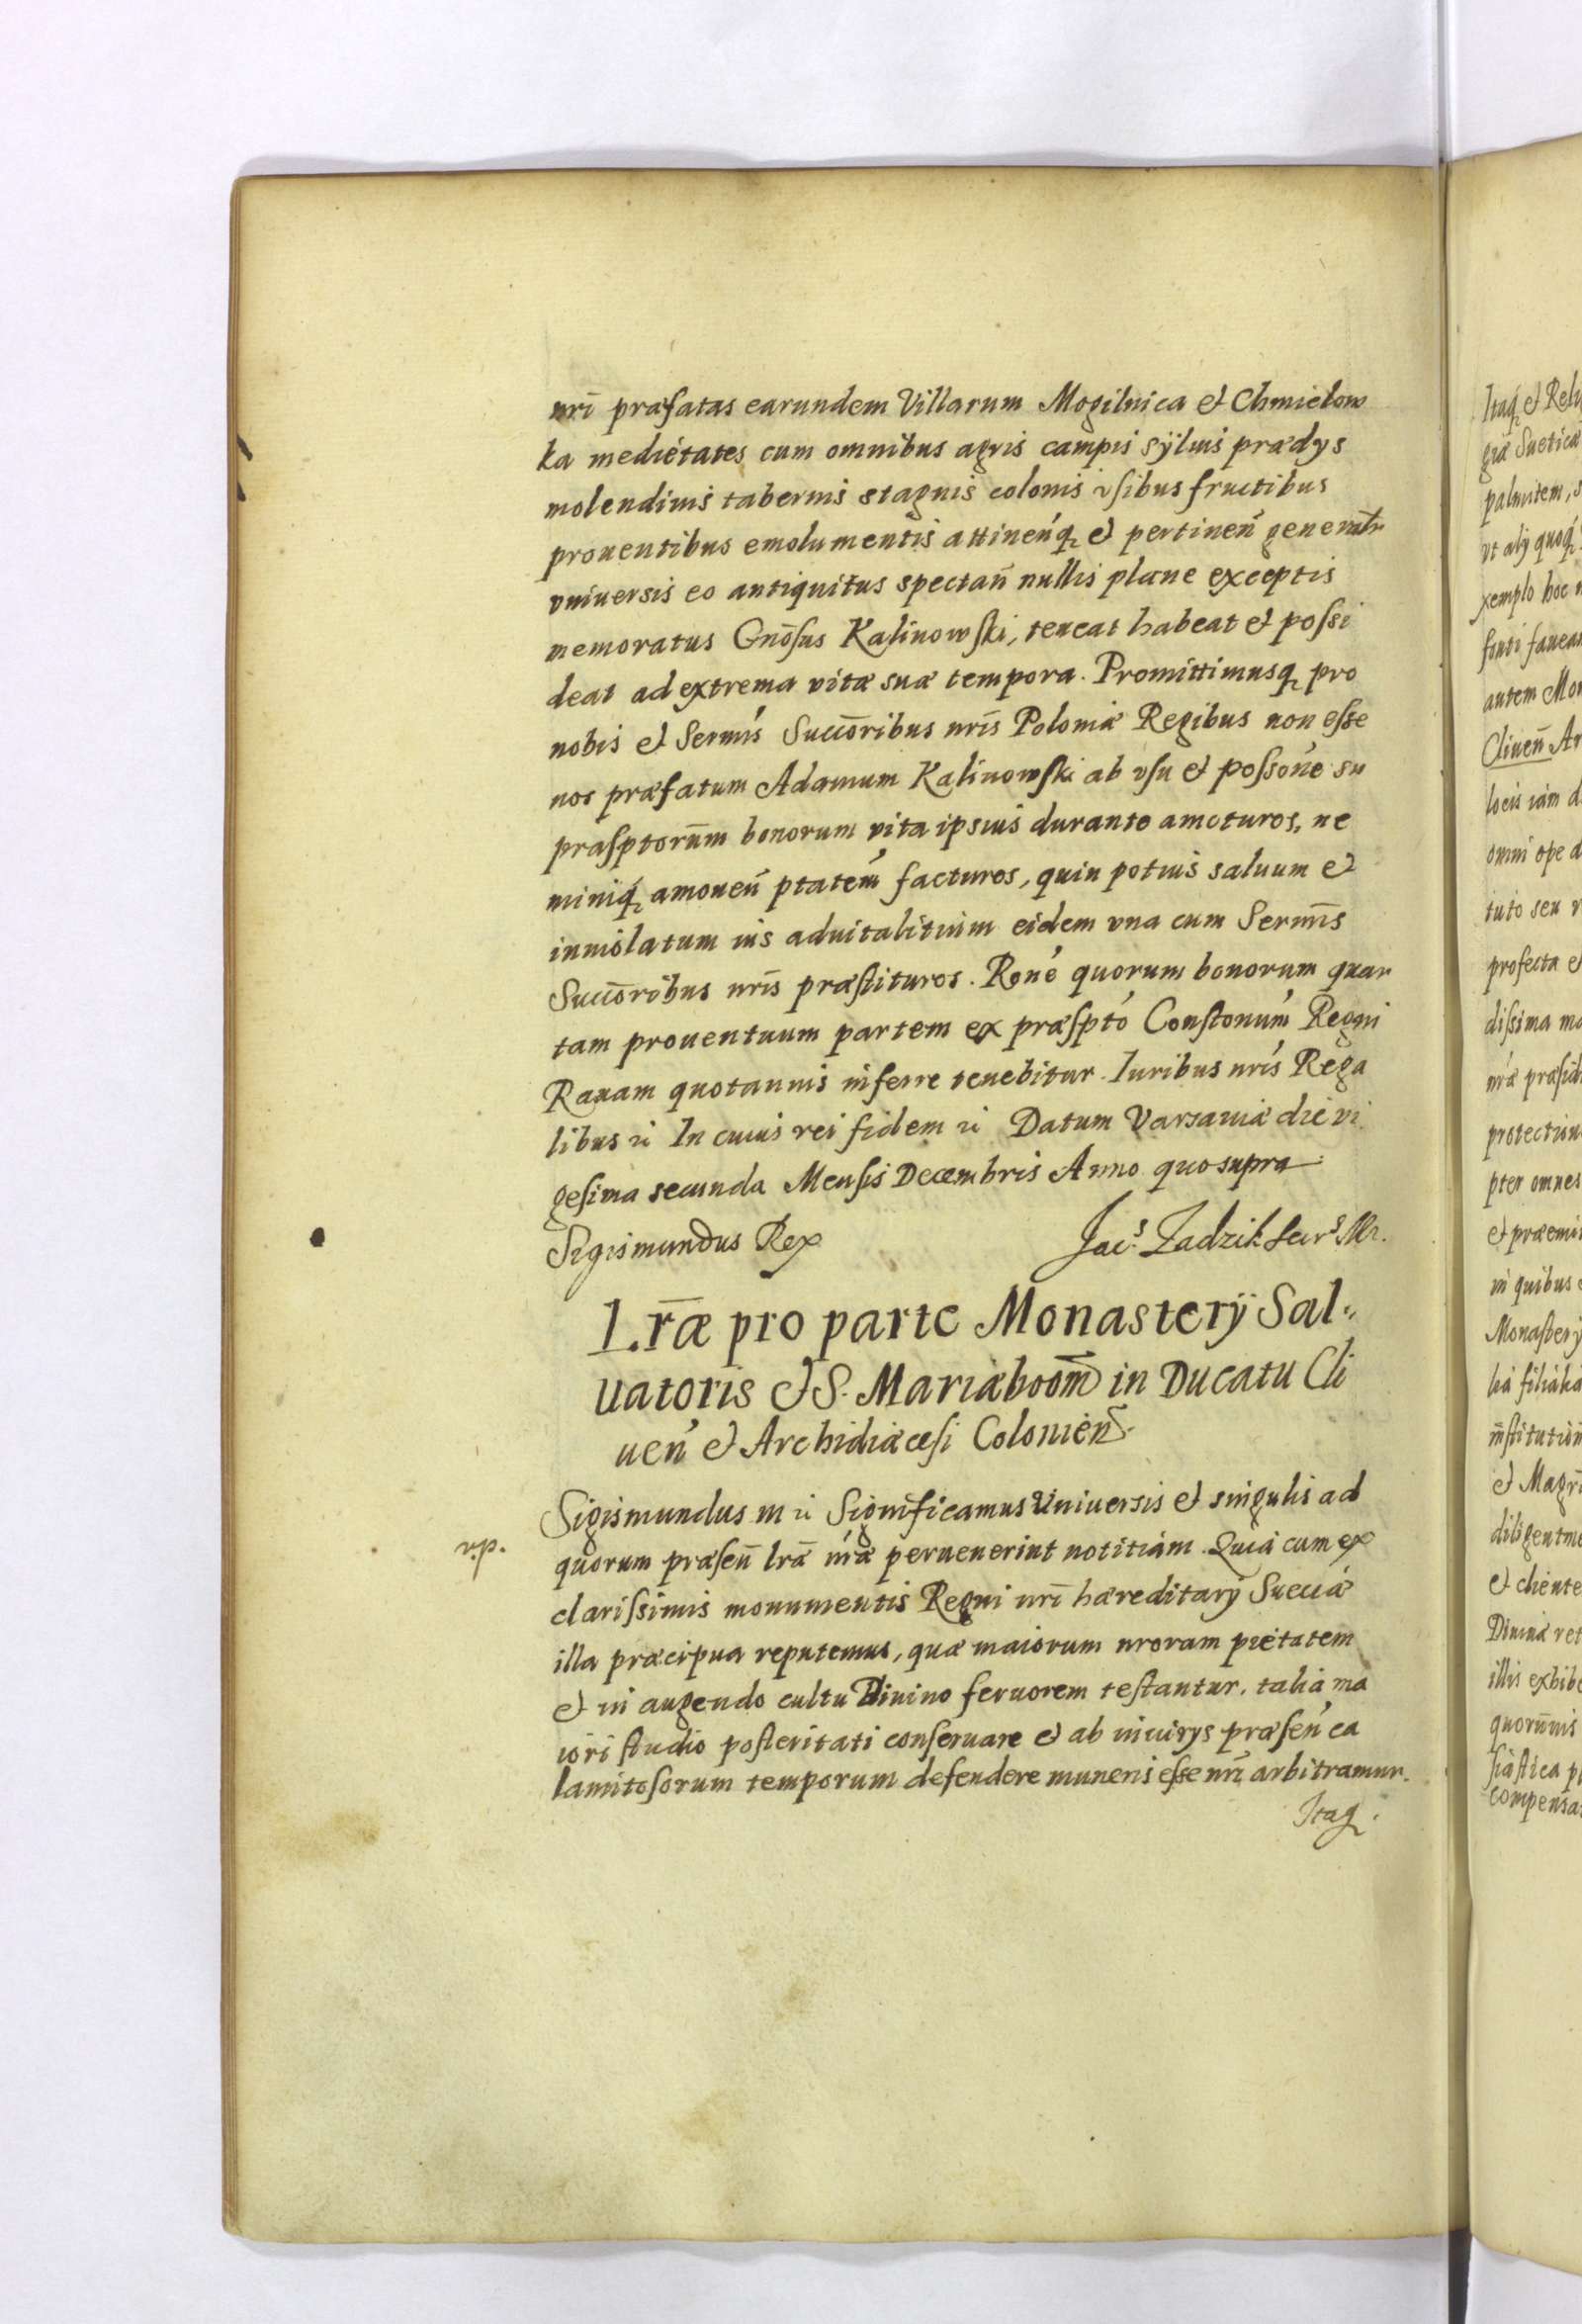 nrī præfatas earundem Villarum Mogilnica et Chmielow
ka medietates cum omnibus agris campis sÿluis prædys
molendinis tabernis stagnis colonis vsibus fructibus
prouentibus emolumentis attineńq et pertineń generalr
vniuersis eo antiquitus spectan̄ nullis plane exceptis
memoratus Gnōsus Kalinowski, teneat habeat et possi
deat ad extrema vitæ suæ tempora. Promittimusq pro
nobis et Sermīs Succōribus nrīs Poloniæ Regibus non esse
nos præfatum Adamum Kalinowski ab vsu et possonē su
præsptorūm bonorum vita ipsius durante amoturos, ne
miniq́ amouen̄ ptatem̄ facturos, quin potius saluum et
inuiolatum ius aduitalitium eidem vna cum Sermīs
Succōribus nrīs præstituros. Ronē quorum bonorum quar
tam prouentuum partem ex præsptó Constonúm Regni
Rauam quotannis inferre tenebitur. Iuribus nrīs Rega
libus ꝛc̃ In cuius rei fidem ꝛc̃ Datum Varsauiæ die vi
gesima secunda Mensis Decembris Anno quo supra
Sigismundus Rex Jac.s Zadzik Secr.s Mr.
Lr̄æ pro parte Monasterÿ Sal„
uatoris et S. Mariæboom̄ in Ducatu Cli
ueń et Archidiæcesi Colonień.
Sigismundus III ꝛc̃ Significamus Vniuersis et singulis ad
v.p.
quorum præsen̄ lrǣ nr̄æ peruenerint notitiam. Quia cum ex
clarissimis monumentis Regni nrī hæreditarÿ Sueciæ
illa præcipua reputemus, quæ maiorum nroram pietatem
et in augendo cultu Diuino feruorem testantur, talia ma
iori studio posteritati conseruare et ab iniurys præseń ca
lamitosorum temporum defendere muneris esse nrī arbitramur.
Itaq.
Itaq́ et Reli
giæ Sueticæ
palmitem, s
vt aly quoq́
xemplo hoc
autem Mon
Cliuen̄ Ar
locis iam d
omni ope d
tuto seu v
profecta et
dissima ma
nr̄æ præsid
protection
pter omnes
et præemi
in quibus
Monastery
lia filialia
īnstitution
et Magrī
diligentme
et cliente
Diuinæ ret
illis exhibe
quorūnis
siastica p
compensa